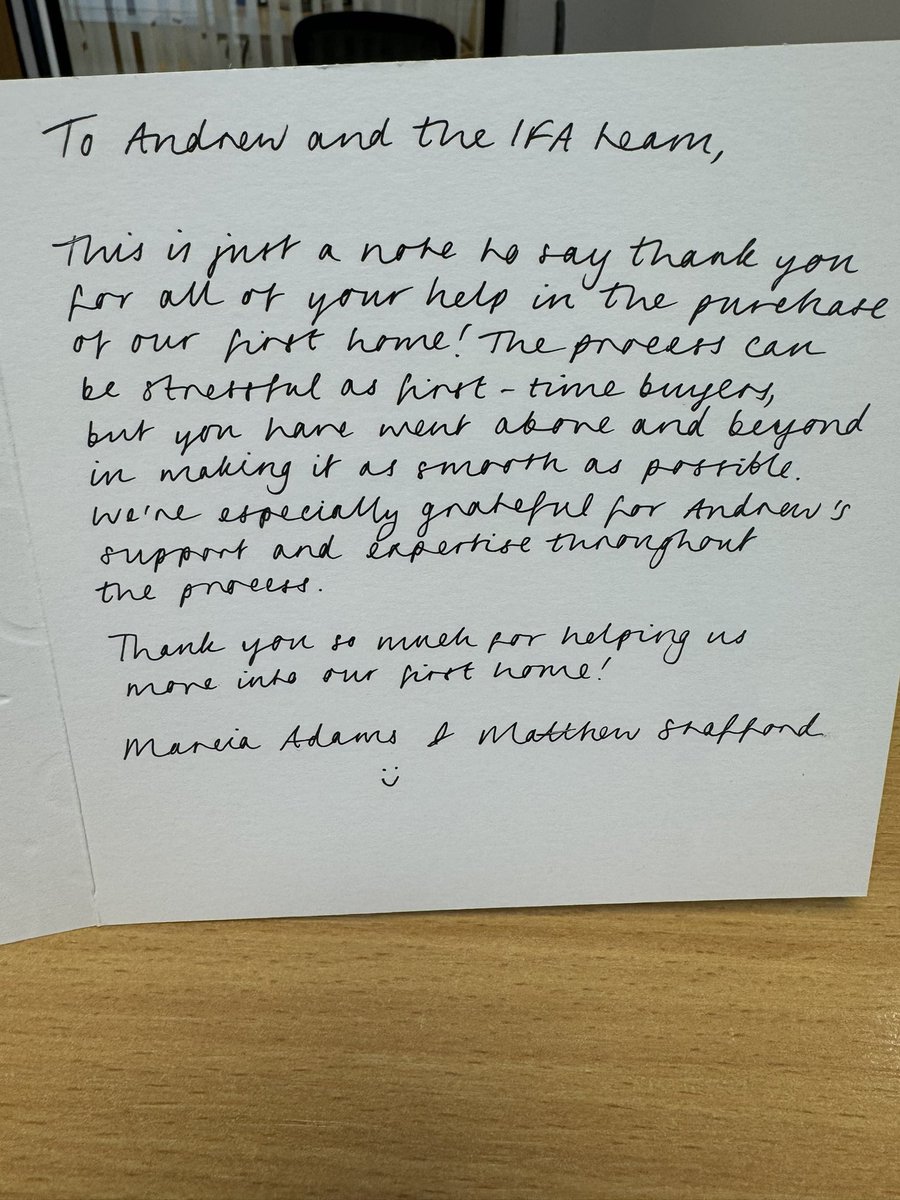 To Andrew and the IFA team,
This is just a note to say thank you
for all of your help in the purchase
of our first home! The process can
be stressful as first-time buyers,
but you have went above and beyond
in making it as smooth as possible.
We're especially grateful for Andrew's
support and expertise throughout
the process.
Thank you so much for helping us
move into our first home!
Marcia Adams & Matthew Strafford
:)